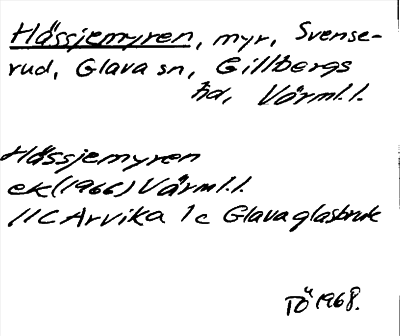 Hässjemyren, myr, Svense-
rud, Glava sn, Gillbergs
hd, Värml.l.
Hässjemyren
ek (1966) Värml.l.
11C Arvika 1c Glava glasbruk
TÖ 1968.